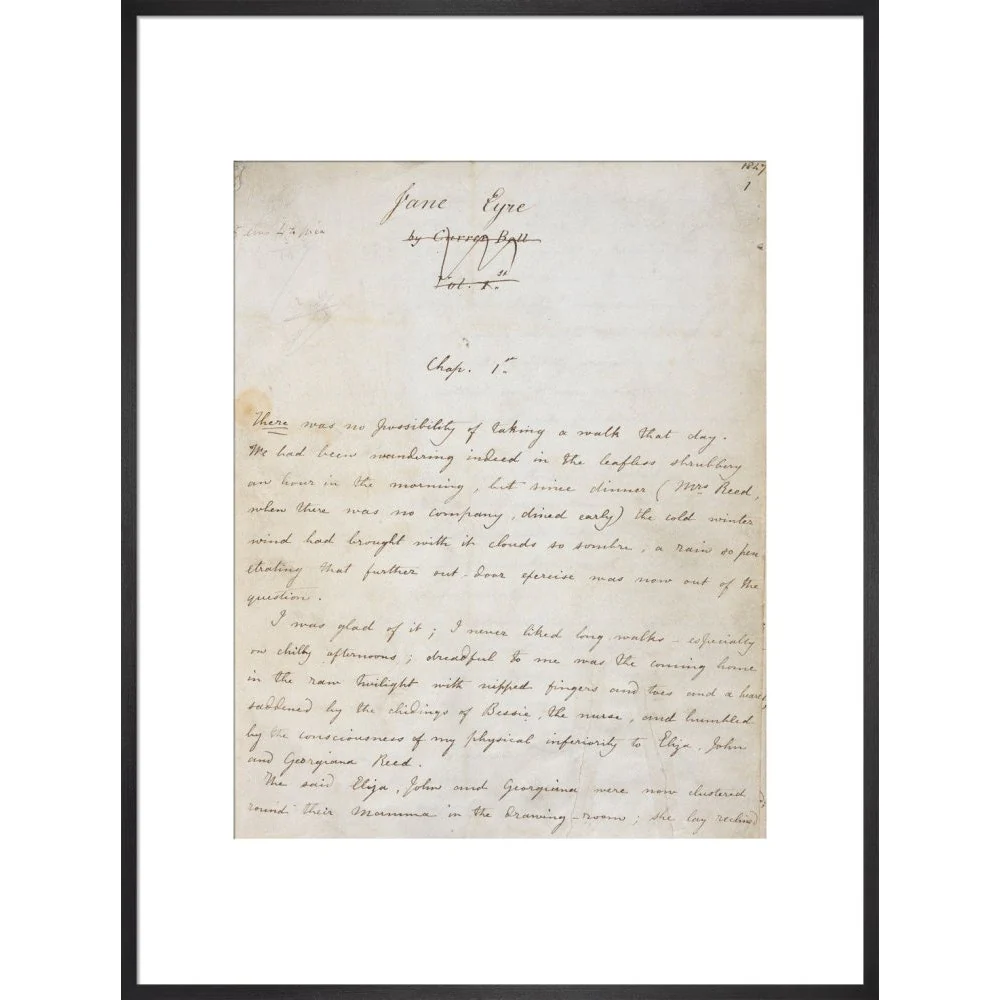 1847
1
Jane Eyre
by Currer Bell
Vol. 1.st
Chap. 1st
There was no possibility of taking a walk that day.
We had been wandering indeed in the leafless shrubbery
an hour in the morning, but since dinner (Mrs Reed,
when there was no company, dined early) the cold winter
wind had brought with it clouds so sombre, a rain so pen
etrating that further out-door exercise was now out of the
question.
I was glad of it; I never liked long walks - especially
on chilly afternoons; dreadful to me was the coming home
in the raw twilight with nipped fingers and toes and a heart
saddened by the chidings of Bessie, the nurse, and humbled
by the consciousness of my physical inferiority to Eliza, John
and Georgiana Reed.
The said Eliza, John and Georgiana were now clustered
round their Mamma in the drawing-room; she lay reclined